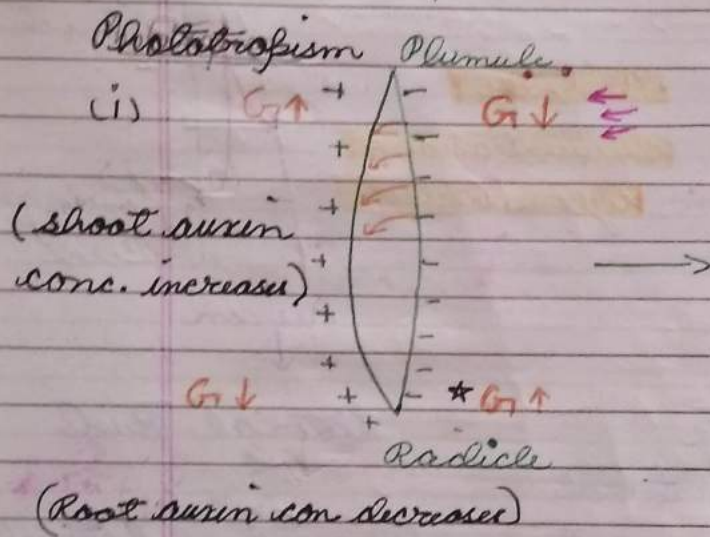 Phototropism Plumule
(i) G↑ + - G↓
(shoot auxin
conc. increases)
G↓ + - ★ G↑
Radicle
(Root auxin con decreases)